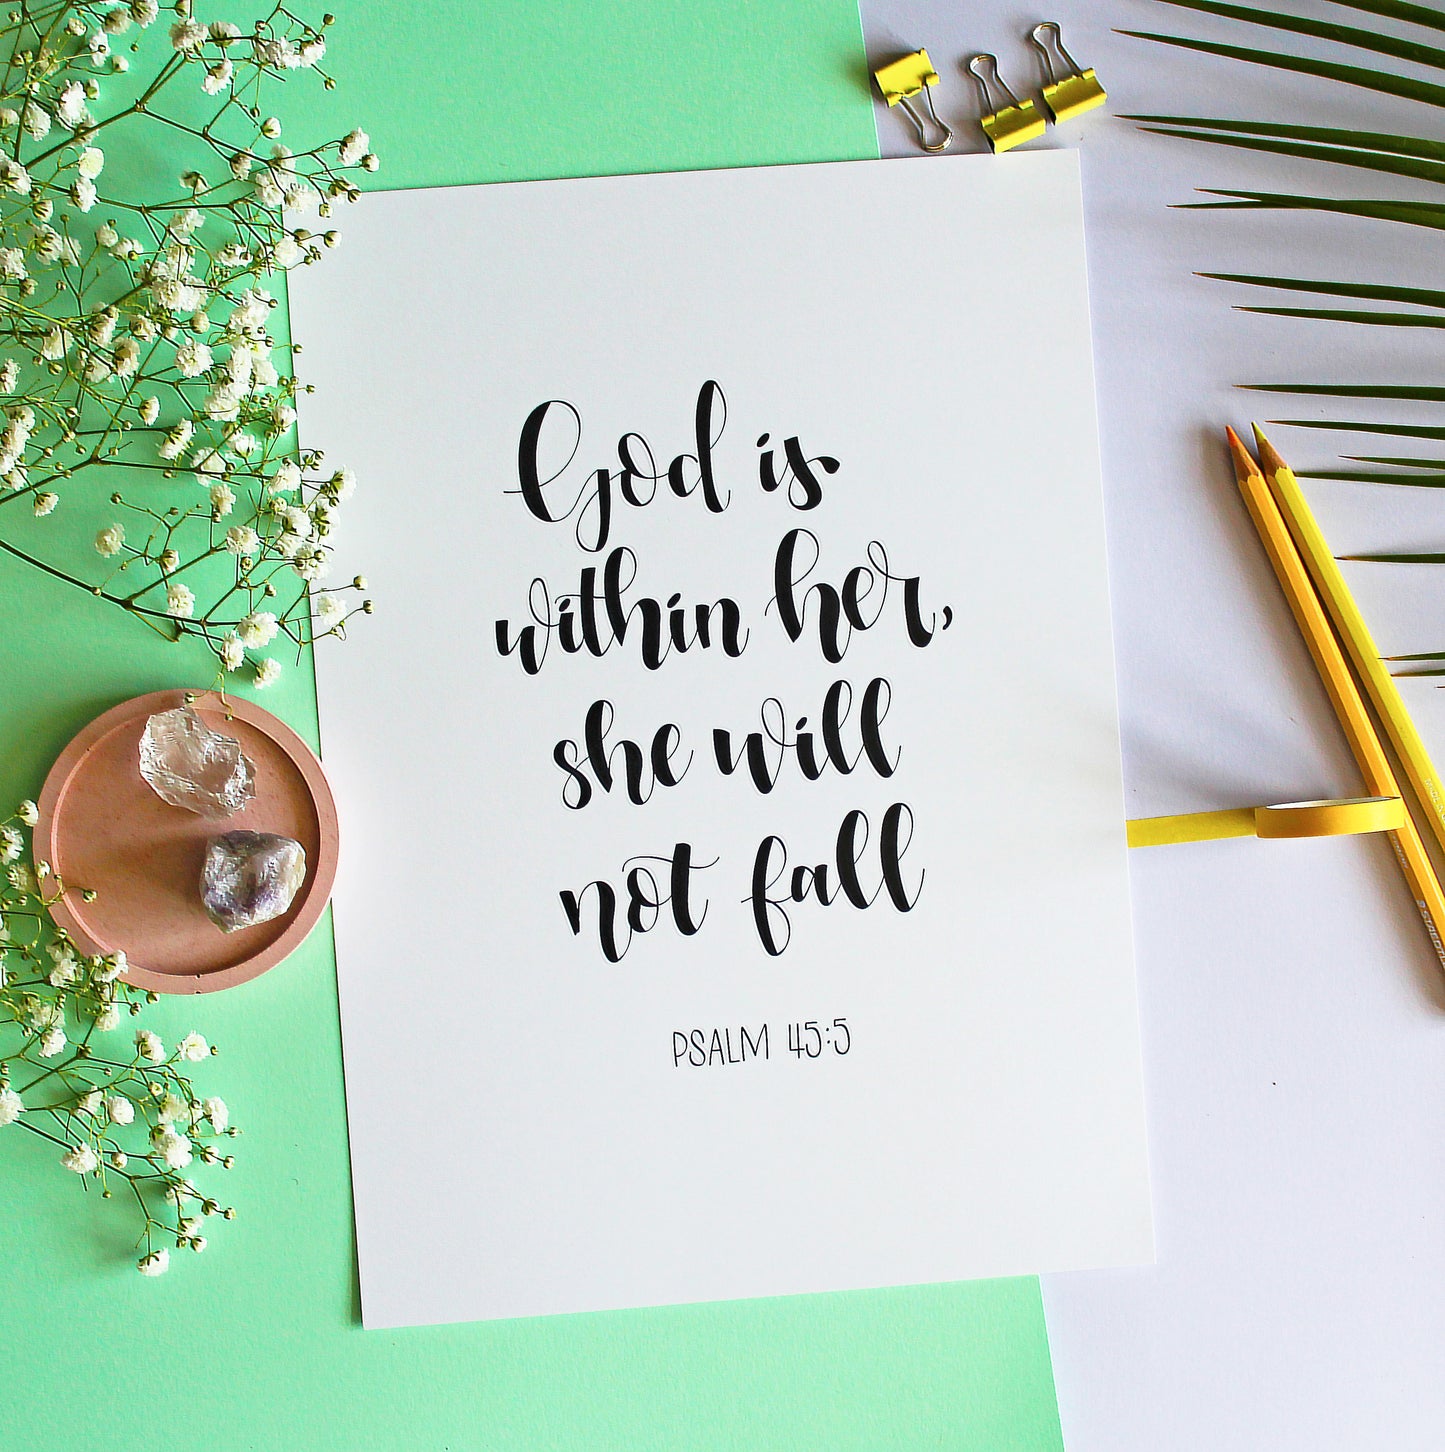 God is
within her,
she will
not fall
PSALM 45:5